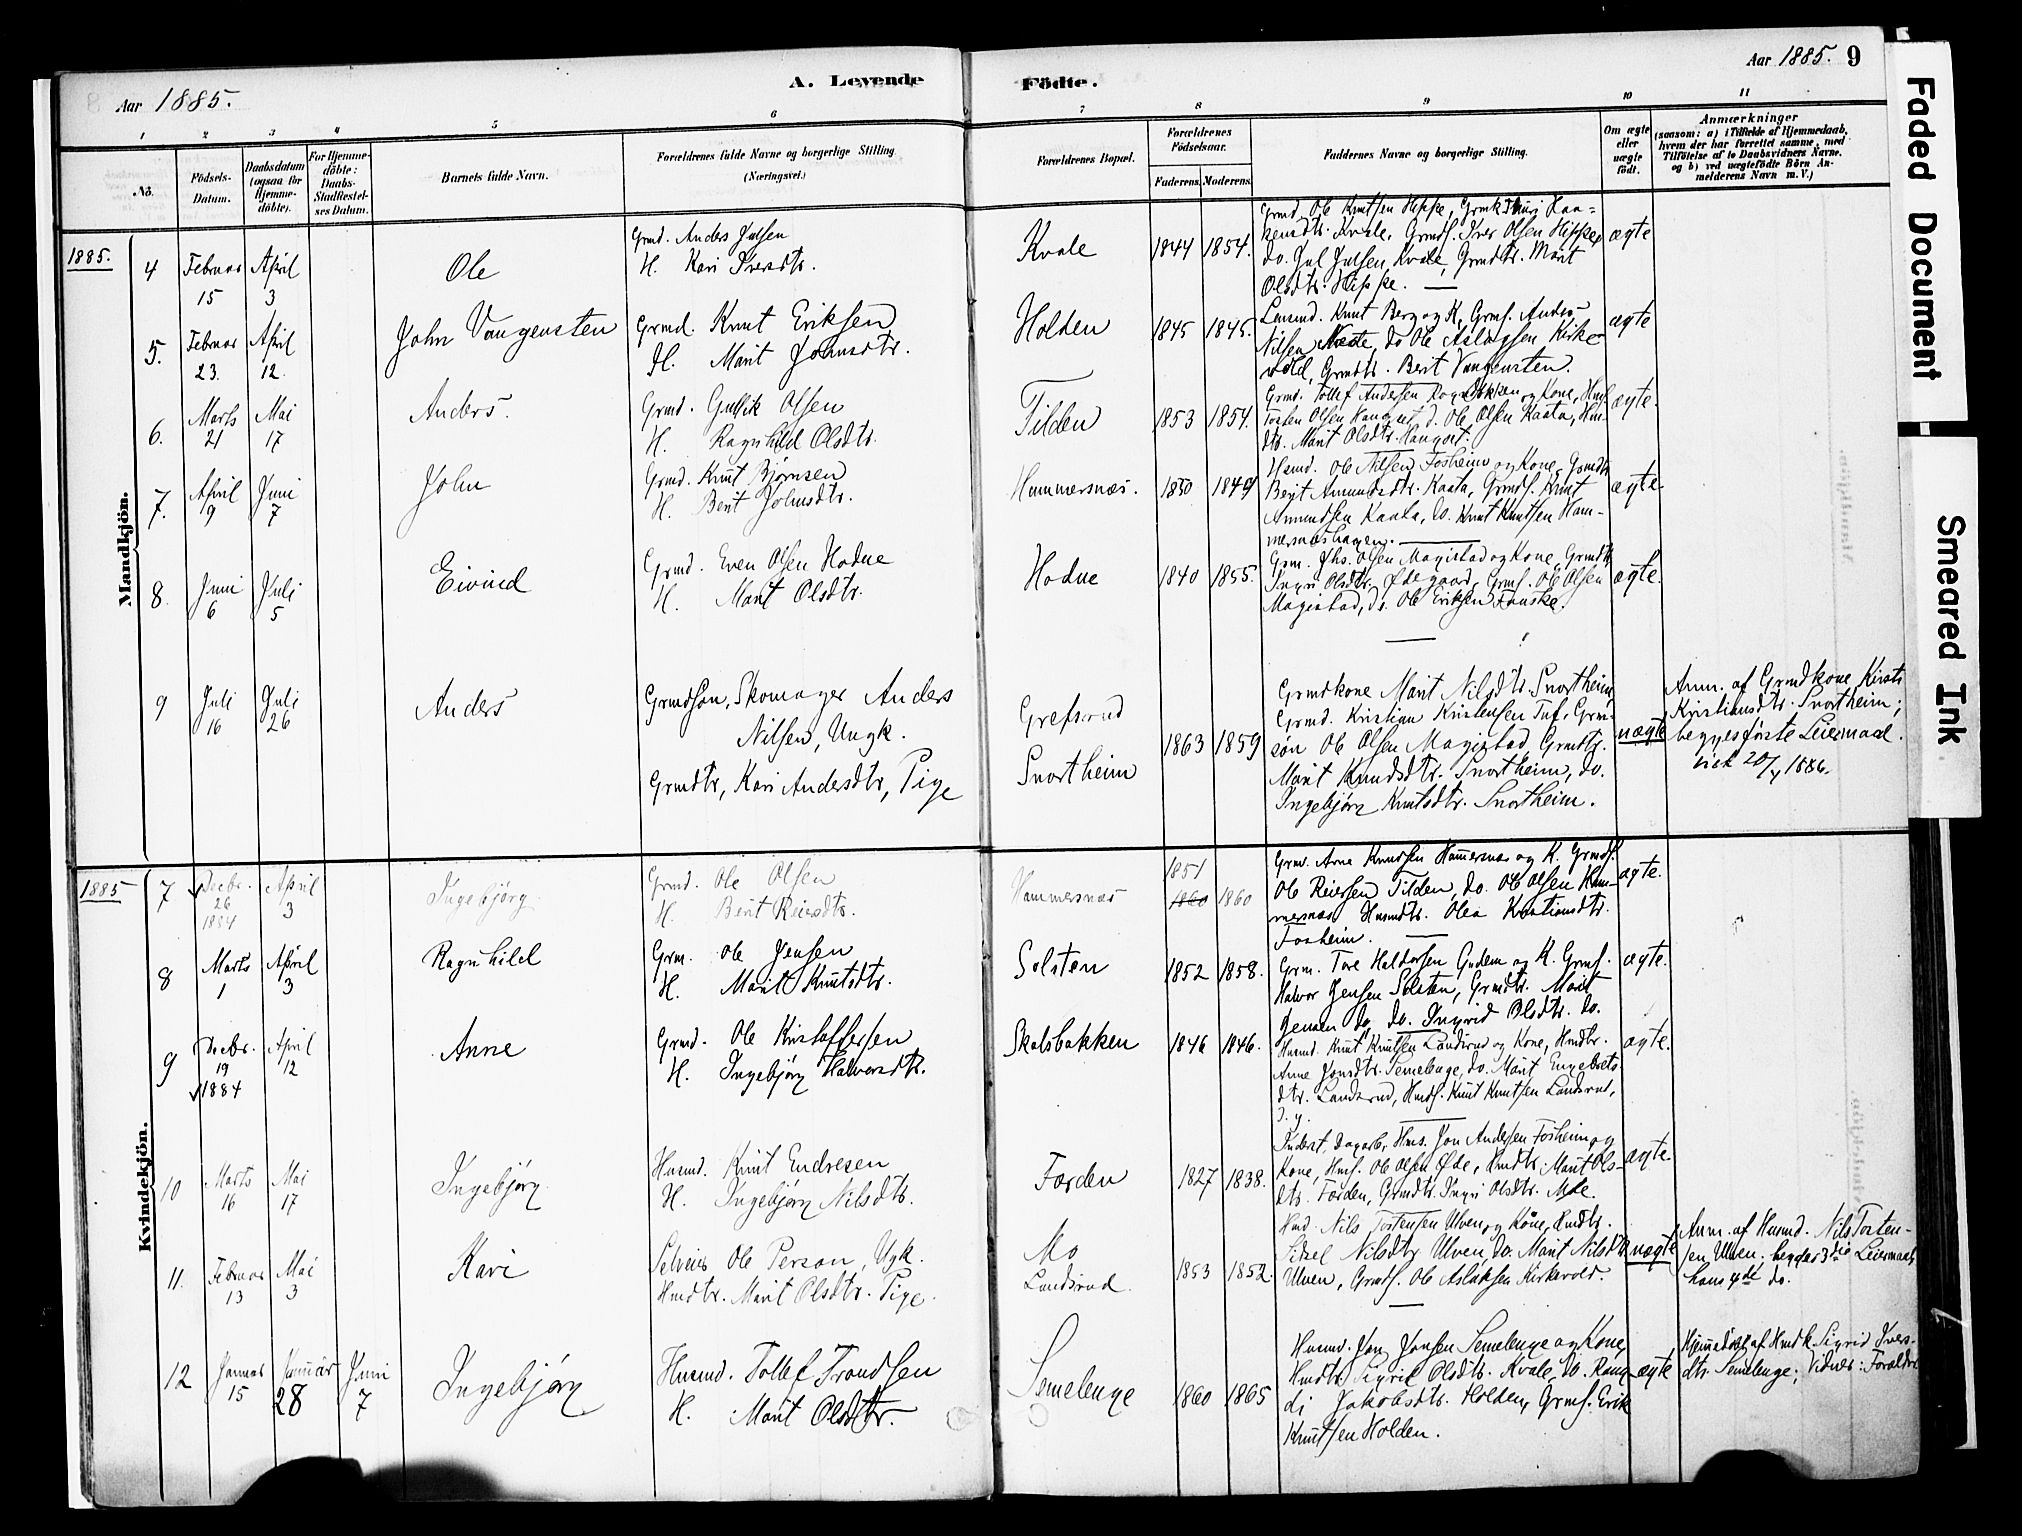 Aar 1885.
A. Levende
Födte.
Aar 1885. 9
1 2 3 4 5 6 7 8 9 10 11
No.
Födsels-
Datum.
Daabsdatum
(ogsaa for
Hjemme-
döbte).
For Hjemme-
döbte:
Daabs-
Stadfæstel-
ses Datum.
Barnets fulde Navn.
Forældrenes fulde Navne og borgerlige Stilling
(Næringsvei.)
Forældrenes Bopæl.
Forældrenes
Födselsaar.
Faderens. Moderens.
Faddernes Navne og borgerlige Stilling.
Om ægte
eller
uægte
födt.
Anmærkninger
(saasom: a) i Tilfælde af Hjemmedaab,
hvem der har forrettet samme, med
Tilföielse af to Daabsvidners Navne,
og b) ved uægtefödte Börn An-
melderens Navn m. V.)
Mandkjön.
1885.
4 Februar 15 April 3 Ole
Grmd. Anders Julsen
H. Kari Iversdtr.
Kvale 1844 1854.
Grmd. Ole Knutsen Hippe, Grmk. Thuri Haa-
kensdtr. Kvale, Grmds. Iver Olsen Hippe,
do. Jul Julsen Kvale, Grmdtr. Marit
Olsdtr. Hippe.
ægte
5. Februar 23. April 12. John Vangensten
Grmd. Knut Eriksen
H. Marit Johnsdtr.
Holden 1845 1845.
Lensmd. Knut Berg og K, Grms. Anders
Nilsen, do Ole Aslagsen Kirke-
vold, Grmdtr. Berit Vangensten.
ægte
6. Marts 21 Mai 17 Anders.
Grmd. Gulik Olsen
H. Ragnhild Olsdtr.
Tilden 1853 1854.
Grmd. Tollef Andersen og Kone,
Tosten Olsen Haugset, d. Ole Olsen Kaata,
dtr. Marit Olsdtr. Haugset.
ægte.
7. April 9 Juni 7 John
Grmd. Knut Bjørnsen
H. Berit Johnsdtr.
Hammersnæs. 1850 1849
Husmd. Ole Nilsen Fosheim og Kone, Grmdtr.
Berit Amundsdtr. Kaata, Grmds. Knut
Amundsen Kaata, do. Knut Knutsen Ham-
mersnæshagen.
ægte.
8. Juni 6 Juli 5 Eivind
Grmd. Even Olsen Hodne
H. Marit Olsdtr.
Hodne 1840 1855.
Grm. Ths. Olsen Magistad og Kone, Grmdtr
Ingri Olsdtr. Ødegaard, Grms. Ole Olsen
Magistad, do. Ole Eriksen Fauske.
ægte.
9 Juli 16 Juli 26 Anders
Grmdsøn, Skomager Anders
Nilsen, Ungk.
Grmdtr, Kari Andersdtr, Pige
Grefsrud
Snortheim
1863 1859
Grmdkone Marit Nilsdtr. Snortheim
Grmd. Kristian Kristensen Tuf, Grm-
søn Ole Olsen Magistad, Grmdtr.
Marit Knudsdtr. Snortheim, do.
Ingebjørg Knutsdtr. Snortheim.
uægte
Anm. af Grmdkone Kirsti
Kristiansdtr. Snortheim;
begges første Leiermaal.
20/4 1886.
Kvindekjön.
1885
7 Decbr. 26 1884 April 3 Ingebjørg
Grmd. Ole Olsen
H. Berit Reiersdtr.
Hammersnæs 1851 1860 1860
Grm. Arne Knudsen Hammersnæs og K. Grmds.
Ole Reiersen Tilden, do. Ole Olsen Ham-
mersnæs Husmdtr. Olea Kristiansdtr.
Fosheim.
ægte.
8 Marts 1 April 3 Ragnhild
Grm. Ole Jensen
H. Marit Knutsdtr.
Solsten 1852 1858.
Grm. Tore Haldorsen Gudem og K. Grms.
Halvor Jensen Solsten, Grmdtr. Marit
Jensen do, do. Ingrid Olsdtr. do.
ægte.
9 Decbr. 19 1884 April 12 Anne
Grmd. Ole Kristoffersen
H. Ingebjørg Halvorsdtr.
Skalsbakken 1846 1846.
Husmd. Knut Knutsen Landsrud og Kone, Hmdtr.
Anne Jonsdtr. Semelenge, do. Marit Engebrets-
dtr. Landsrud, Hmds. Knut Knutsen Landsrud,
d. y.
ægte.
10 Marts 16 Mai 17 Ingebjørg
Husmd. Knut Endresen
H. Ingebjørg Nilsdtr.
Forden 1827 1838.
Inderst, Dagarb. Hms. Jon Andersen Fosheim og
Kone, Hms. Ole Olsen Øde, Hmdtr. Marit Ols-
dtr. Forden, Grmdtr. Ingri Olsdtr.
ægte
11. Februar 13 Mai 3 Kari
Selveier Ole Person, Ugk.
Hmdtr. Marit Olsdtr. Pige.
Mo
Landsrud.
1853 1852.
Hmd. Nils Tostensen Ulven og Kone, Hmdtr.
Sidsel Nilsdtr Ulven, do. Marit Nilsdtr
Ulven, Grmds. Ole Aslaksen Kirkevold.
uægte
Anm. af Husmd. Nils Tosten-
sen Ulven. hendes 3die Leiermaal,
hans 4de do.
12 Januar 15 Januar 28 Juni 7 Ingebjørg
Husmd. Tollef Trondsen
H. Marit Olsdtr.
Semelenge 1860 1865
Husmd. Jon Jonsen Semelenge og Kone
Hmdtr. Sigrid Olsdtr. Kvale, do. Rang-
di Jakobsdtr. Holden, Grms. Erik
Knutsen Holden.
ægte
Hjemmedøbt af Hmdk. Sigrid Ivers-
dtr. Semelenge; Vidner: Forældre
Faded Document
Smeared Ink